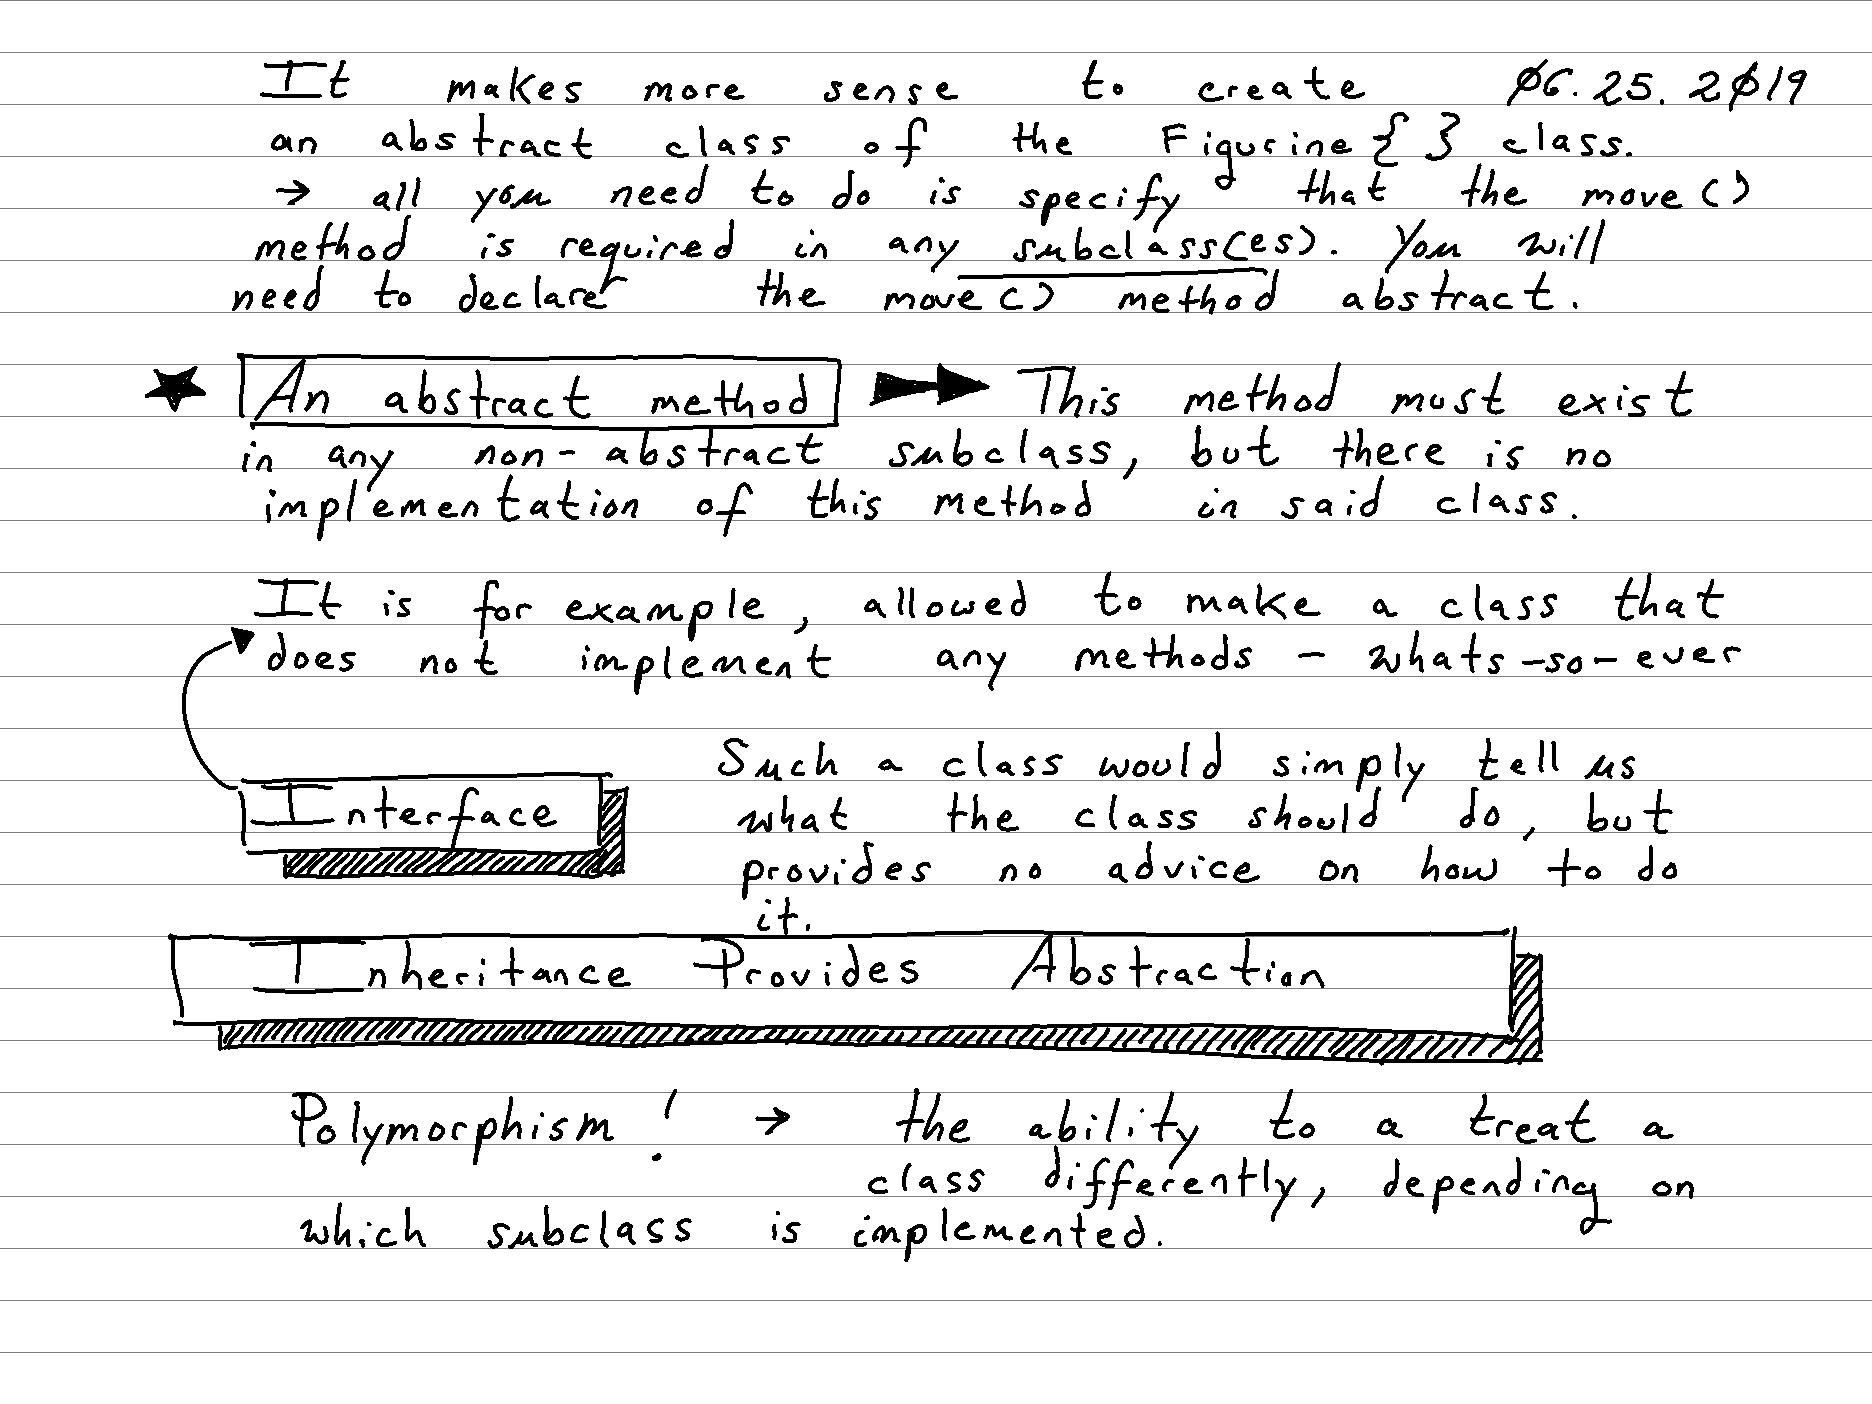 It makes more sense to create 06.25.2019
an abstract class of the Figurine{ } class.
→ all you need to do is specify that the move()
method is required in any subclass(es). You will
need to declare the move() method abstract.
★ An abstract method → This method must exist
in any non-abstract subclass, but there is no
implementation of this method in said class.
It is for example, allowed to make a class that
does not implement any methods - whats-so-ever
Interface
Such a class would simply tell us
what the class should do, but
provides no advice on how to do
it.
Inheritance Provides Abstraction
Polymorphism! → the ability to a treat a
class differently, depending on
which subclass is implemented.